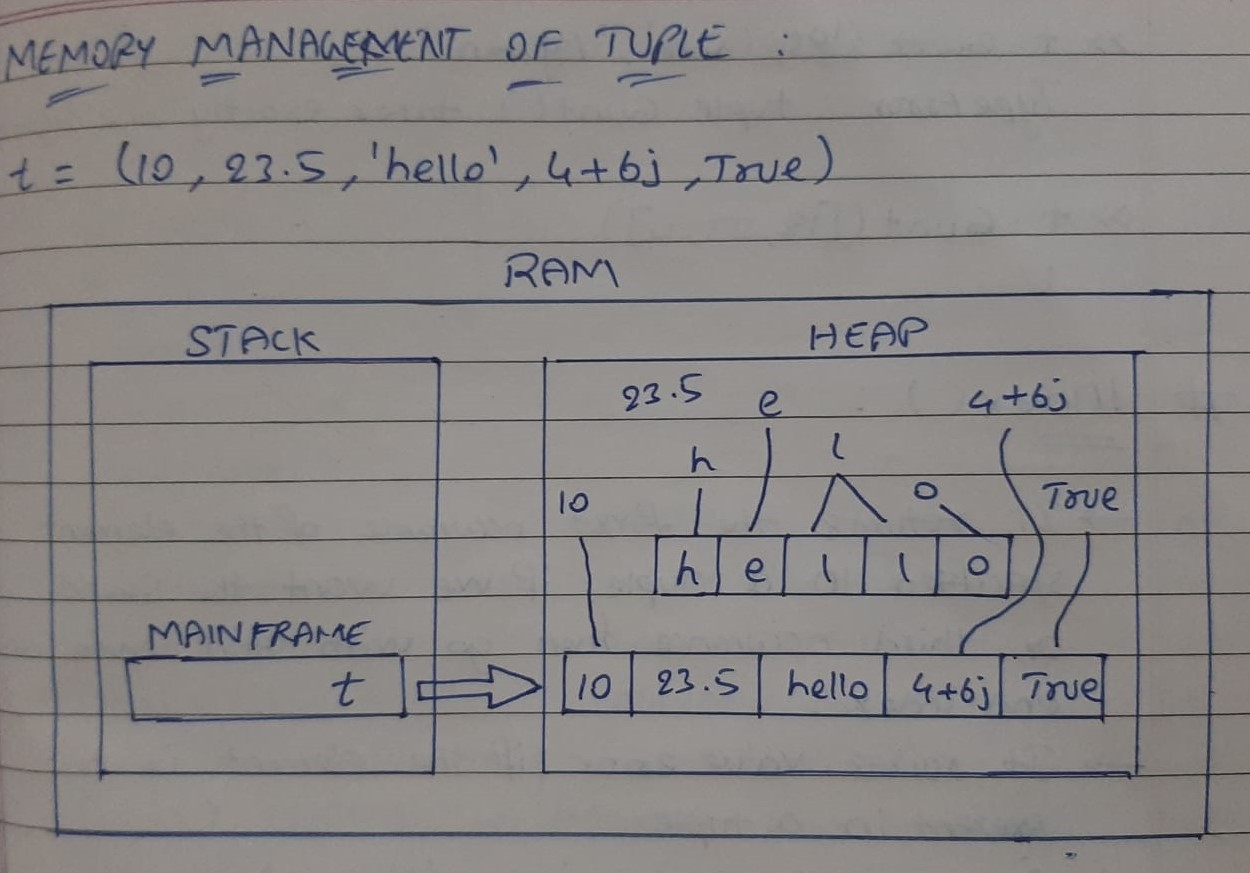 MEMORY MANAGEMENT OF TUPLE :
t = (10, 23.5, 'hello', 4+6j, True)
RAM
STACK HEAP
23.5 e 4+6j
h l
10 o True
h e l l o
MAINFRAME
t 10 23.5 hello 4+6j True